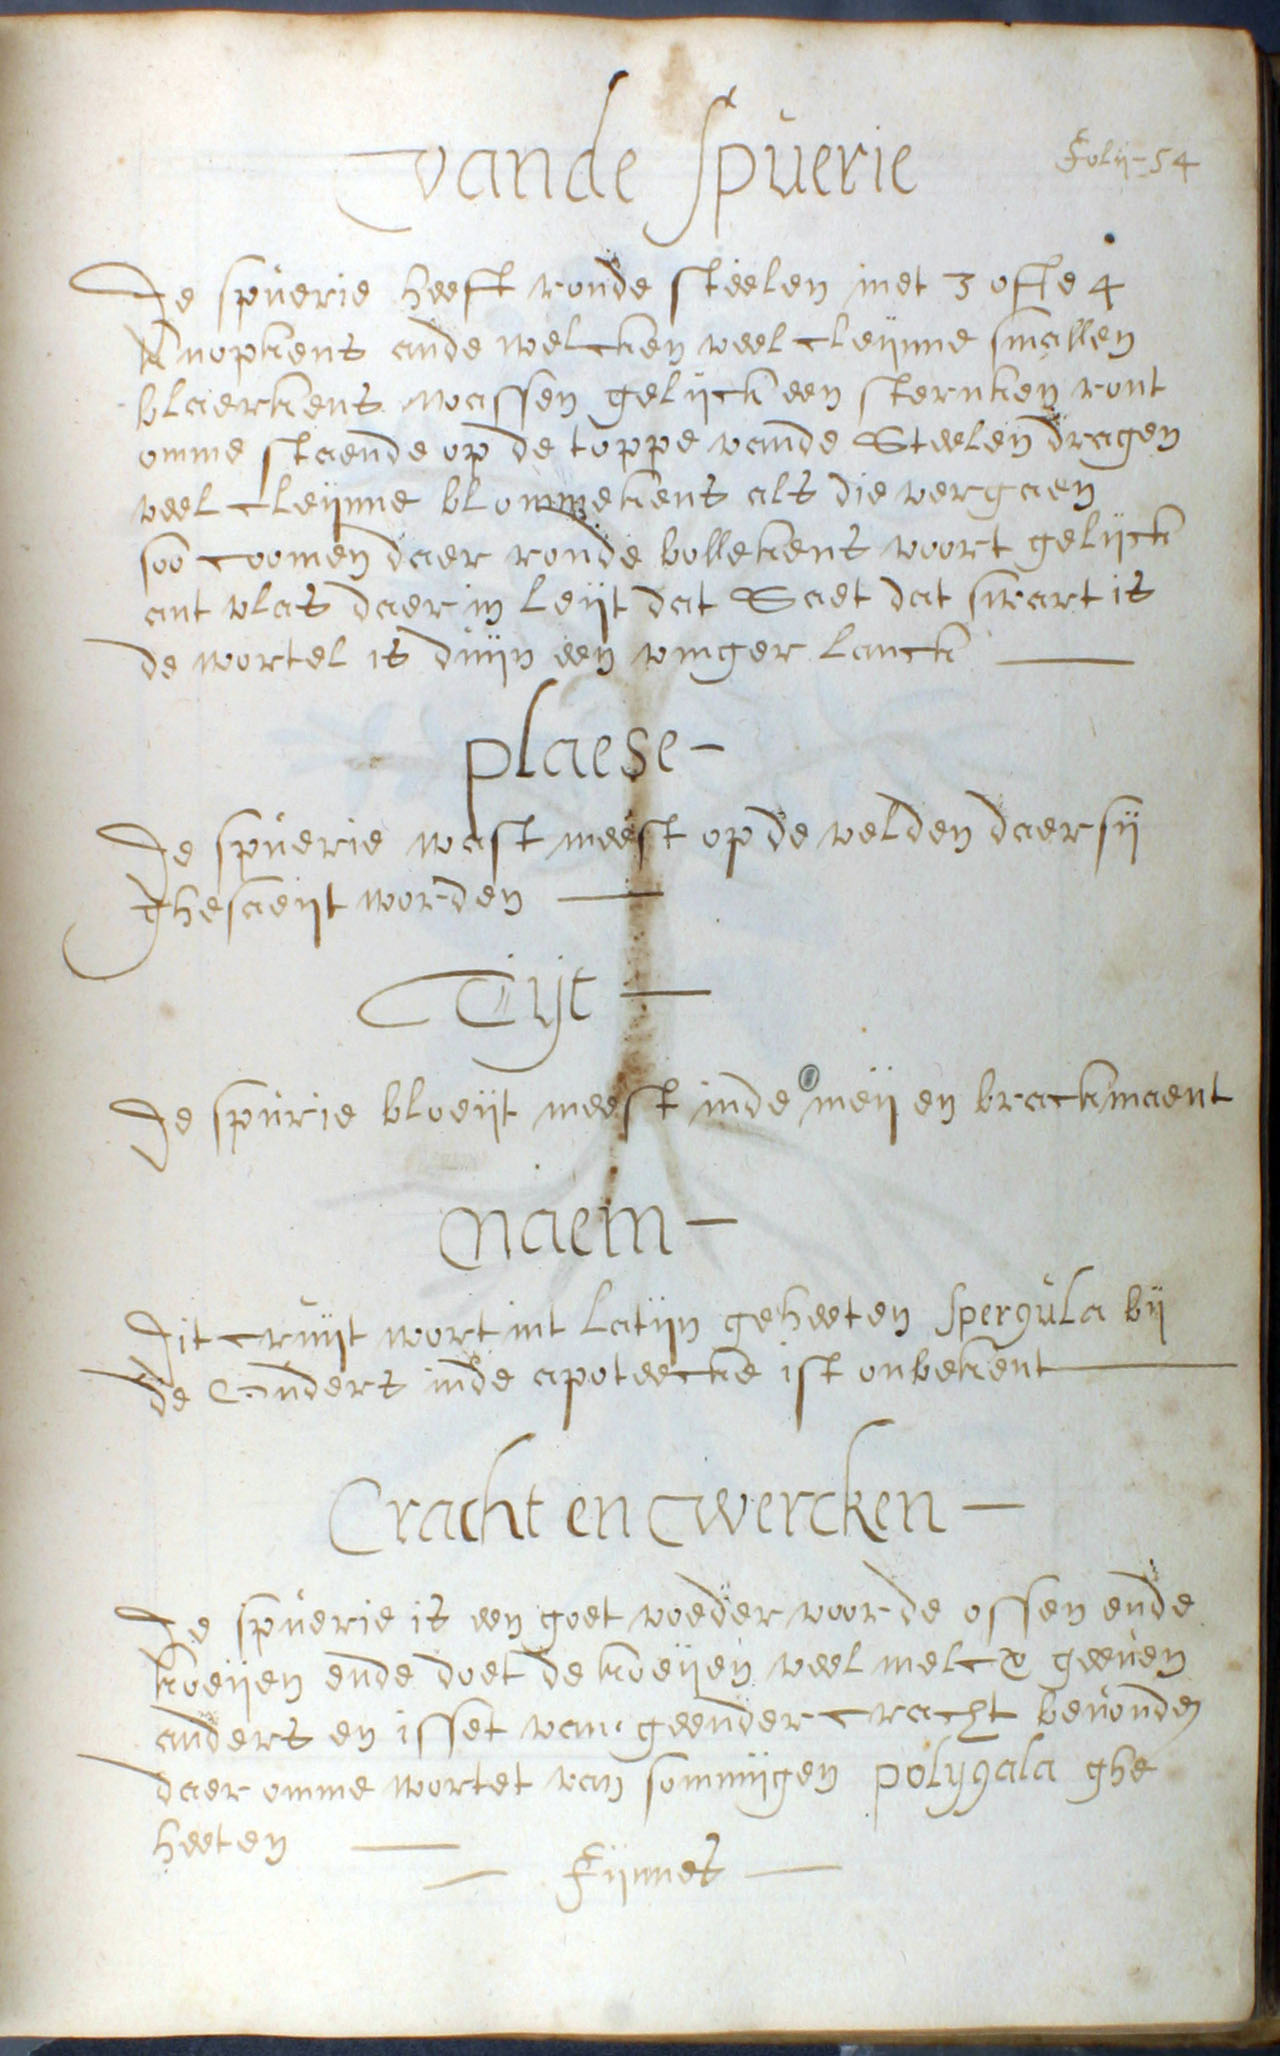 vande Spuerie
Folij-54
De spuerie heeft ronde steelen met 3 ofte 4
knopkens ande welcken veel cleijnne smallen
blaerkens wassen gelijck een sternken ront
omme staende op de toppe vande Steelen dragen
veel cleijnne blommekens als die vergaen
soo coomen daer ronde bollekens voort gelijck
ant vlas daer in leijt dat Saet dat swart is
de wortel is duijn een vinger lanck
plaese-
De spuerie wast meest op de velden daer sij
ghesaeijt worden
Tijt
De spurie bloeijt meest inde meij en brackmaent
Naem-
Dit cruijt wort int latijn geheeten Spergula bij
de inde apoteecke ist onbekent
Cracht en wercken-
De spuerie is een goet voeder voor de ossen ende
koeijen ende doet de koeijen veel melcx geeuen
anders en isset van geender cracht beuonden
daer omme wortet van sommijgen polygala ghe
heeten
Fijnnes